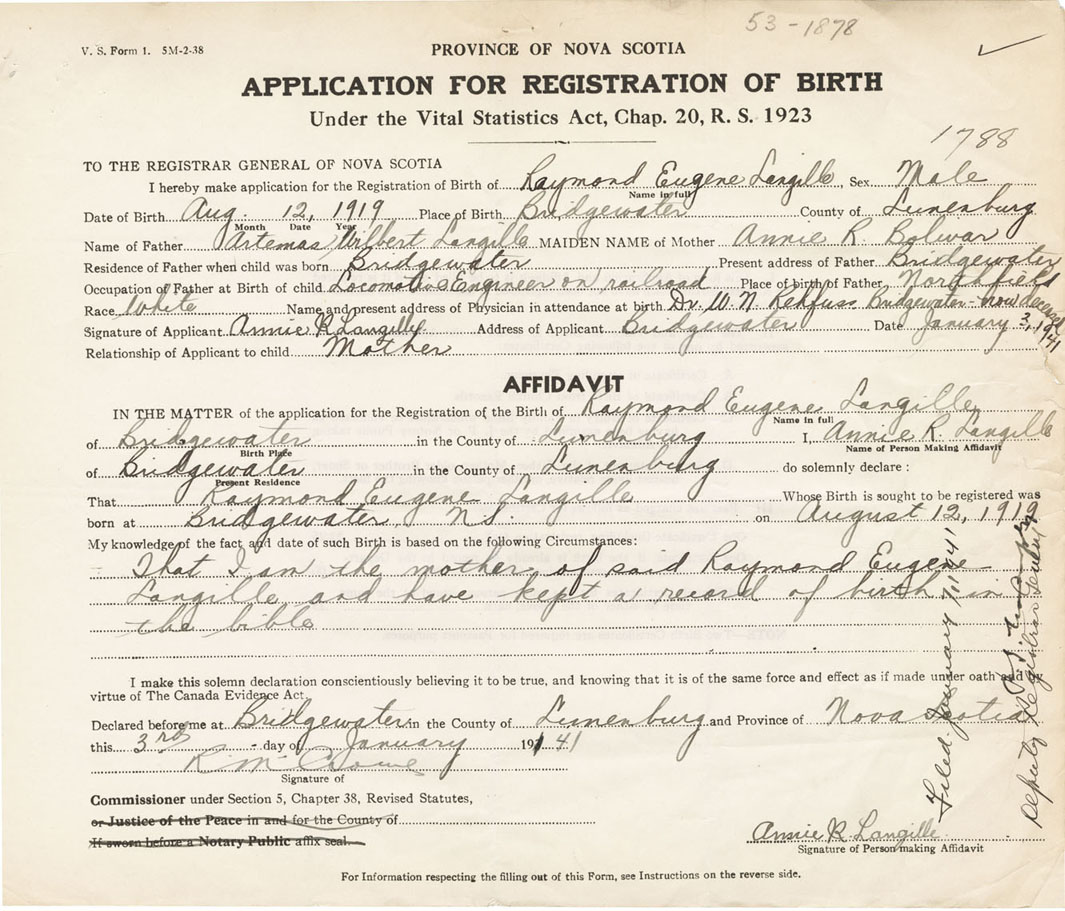 53-1878
V. S. Form 1. 5M-2-38
PROVINCE OF NOVA SCOTIA
APPLICATION FOR REGISTRATION OF BIRTH
Under the Vital Statistics Act, Chap. 20, R. S. 1923
1788
TO THE REGISTRAR GENERAL OF NOVA SCOTIA
I hereby make application for the Registration of Birth of Raymond Eugene Langille, Sex Male
Name in full
Date of Birth Aug. 12, 1919 Place of Birth Bridgewater County of Lunenburg
Month Date Year
Name of Father Artemas Wilbert Langille MAIDEN NAME of Mother Annie R. Bolivar
Residence of Father when child was born Bridgewater Present address of Father Bridgewater
Occupation of Father at Birth of child Locomotive Engineer on railroad Place of birth of Father Northfield
Race White Name and present address of Physician in attendance at birth Dr. W. N. Rehfuss Bridgewater - now deceased
Signature of Applicant Annie R Langille Address of Applicant Bridgewater Date January 3, 1941
Relationship of Applicant to child Mother
AFFIDAVIT
IN THE MATTER of the application for the Registration of the Birth of Raymond Eugene Langille
Name in full
of Bridgewater in the County of Lunenburg I, Annie R. Langille
Birth Place Name of Person Making Affidavit
of Bridgewater in the County of Lunenburg do solemnly declare :
Present Residence
That Raymond Eugene Langille Whose Birth is sought to be registered was
born at Bridgewater N.S. on August 12, 1919
My knowledge of the fact and date of such Birth is based on the following Circumstances:
That I am the mother of said Raymond Eugene
Langille and have kept a record of birth in
the bible
I make this solemn declaration conscientiously believing it to be true, and knowing that it is of the same force and effect as if made under oath and by
virtue of The Canada Evidence Act.
Declared before me at Bridgewater in the County of Lunenburg and Province of Nova Scotia
this 3rd day of January 1941
Signature of
Commissioner under Section 5, Chapter 38, Revised Statutes,
or Justice of the Peace in and for the County of
If sworn before a Notary Public affix seal.
Annie R. Langille
Signature of Person making Affidavit
Filed January 7/1941
Deputy Registrar General
For Information respecting the filling out of this Form, see Instructions on the reverse side.